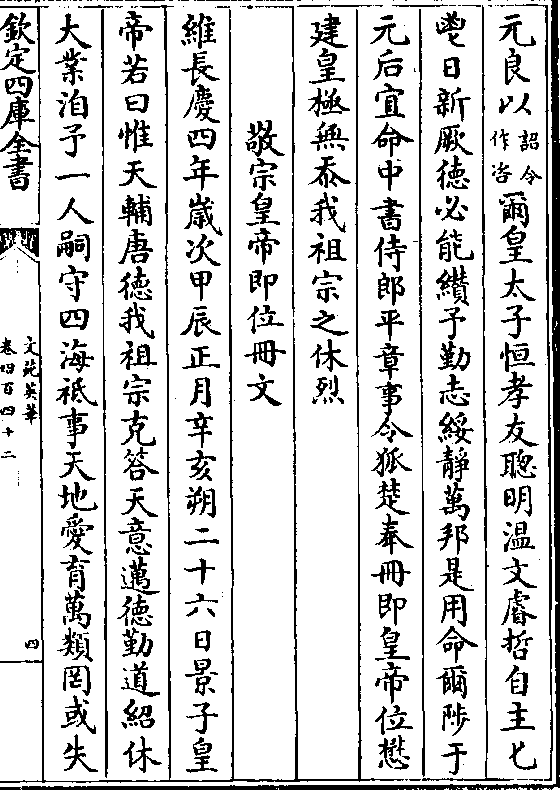 元良以詔令作咨爾皇太子恒孝友聰明温文睿哲自主匕
鬯日新厥徳必能纉予勤志綏靜萬邦是用命爾陟于
元后宜命中書侍郎平章事令狐楚奉冊即皇帝位懋
建皇極無忝我祖宗之休烈
敬宗皇帝即位冊文
維長慶四年歳次甲辰正月辛亥朔二十六日景子皇
帝若曰惟天輔唐徳我祖宗克答天意邁徳勤道紹休
大業洎予一人嗣守四海祗事天地愛育萬類罔或失
欽定四庫全書
文苑英華
卷四百四十二
四